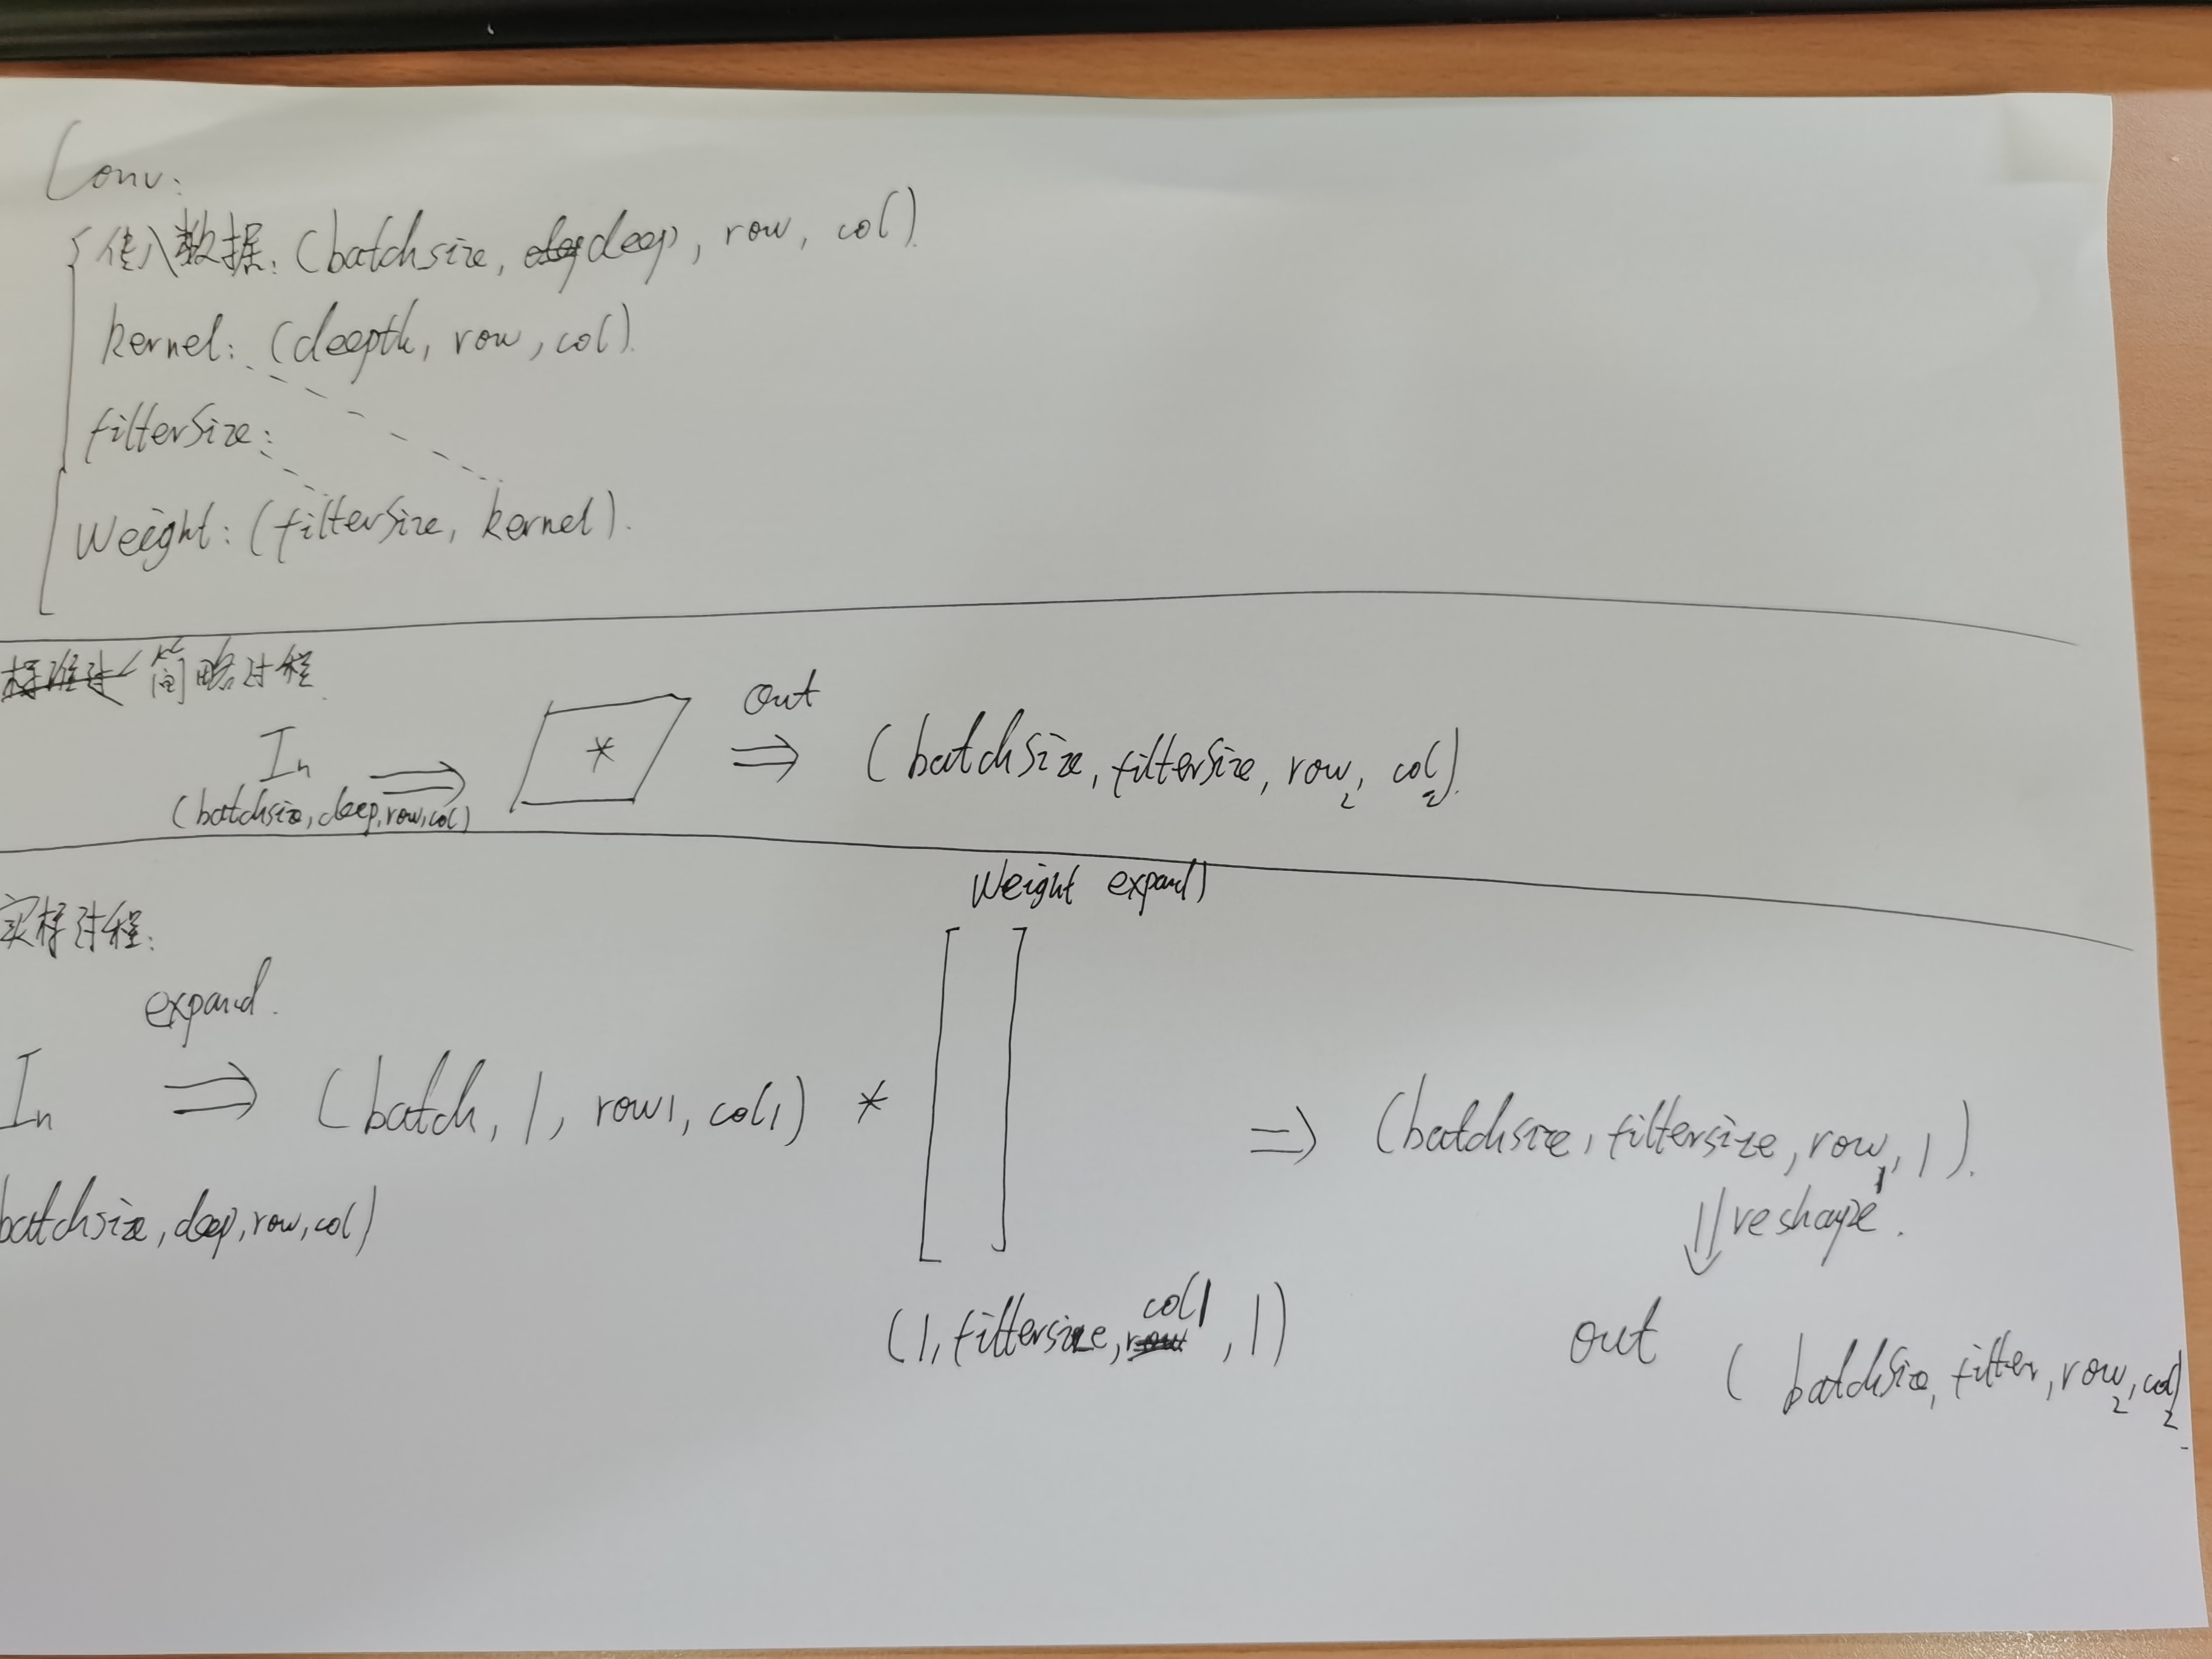 Conv:
传入数据: (batchsize, deep, row, col).
kernel: (deepth, row, col).
filterSize:
Weight: (filterSize, kernel).
标准过 简略过程
In
(batchsize, deep, row, col)
⇒ * ⇒
out
(batchSize, filterSize, row2, col2).
Weight expand
实际过程:
expand.
In ⇒ (batch, 1, row1, col1) * [ ] ⇒ (batchsize, filtersize, row1, 1).
batchsize, deep, row, col)
⇓ reshape.
(1, filtersize, col1, 1)
out ( batchsize, filter, row2, col2